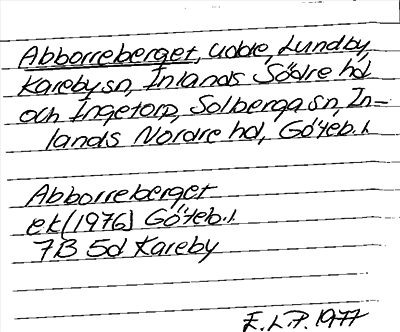 Abborreberget, udde, Lundby,
Kareby sn, Inlands Södre hd
och Ingetorp, Solberga sn, In-
lands Nordre hd, Göteb. l
Abborreberget
ek (1976) Göteb. l
7B 5d Kareby
E. L. P. 1977